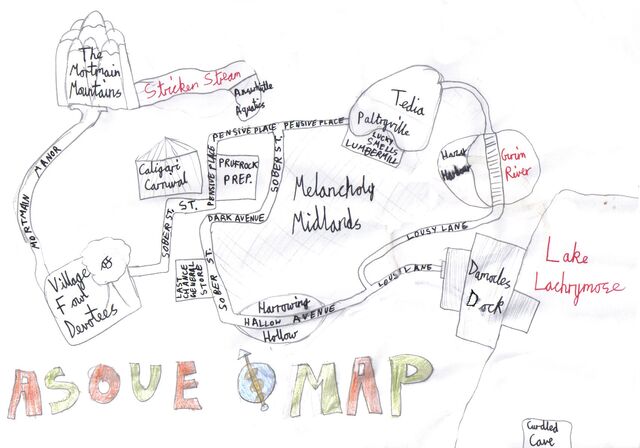 The
Mortmain
Mountains
Stricken Stream
Anwhistle
Aquatics
MORTMAIN MANOR
Caligari
Carnival
PENSIVE PLACE
PENSIVE PLACE
PENSIVE PLACE
PRUFROCK
PREP.
SOBER ST.
Tedia
Paltryville
LUCKY
SMELLS
LUMBERMILL
Harsh
Harbour
Grim
River
Melancholy
Midlands
SOBER ST.
DARK AVENUE
SOBER ST.
LAST
CHANCE
GENERAL
STORE
Village
Fowl
Devotees
Harrowing
HALLOW AVENUE
Hollow
LOUSY LANE
LOUSY LANE
Damocles
Dock
Lake
Lachrymose
Curdled
Cave
ASOUE MAP